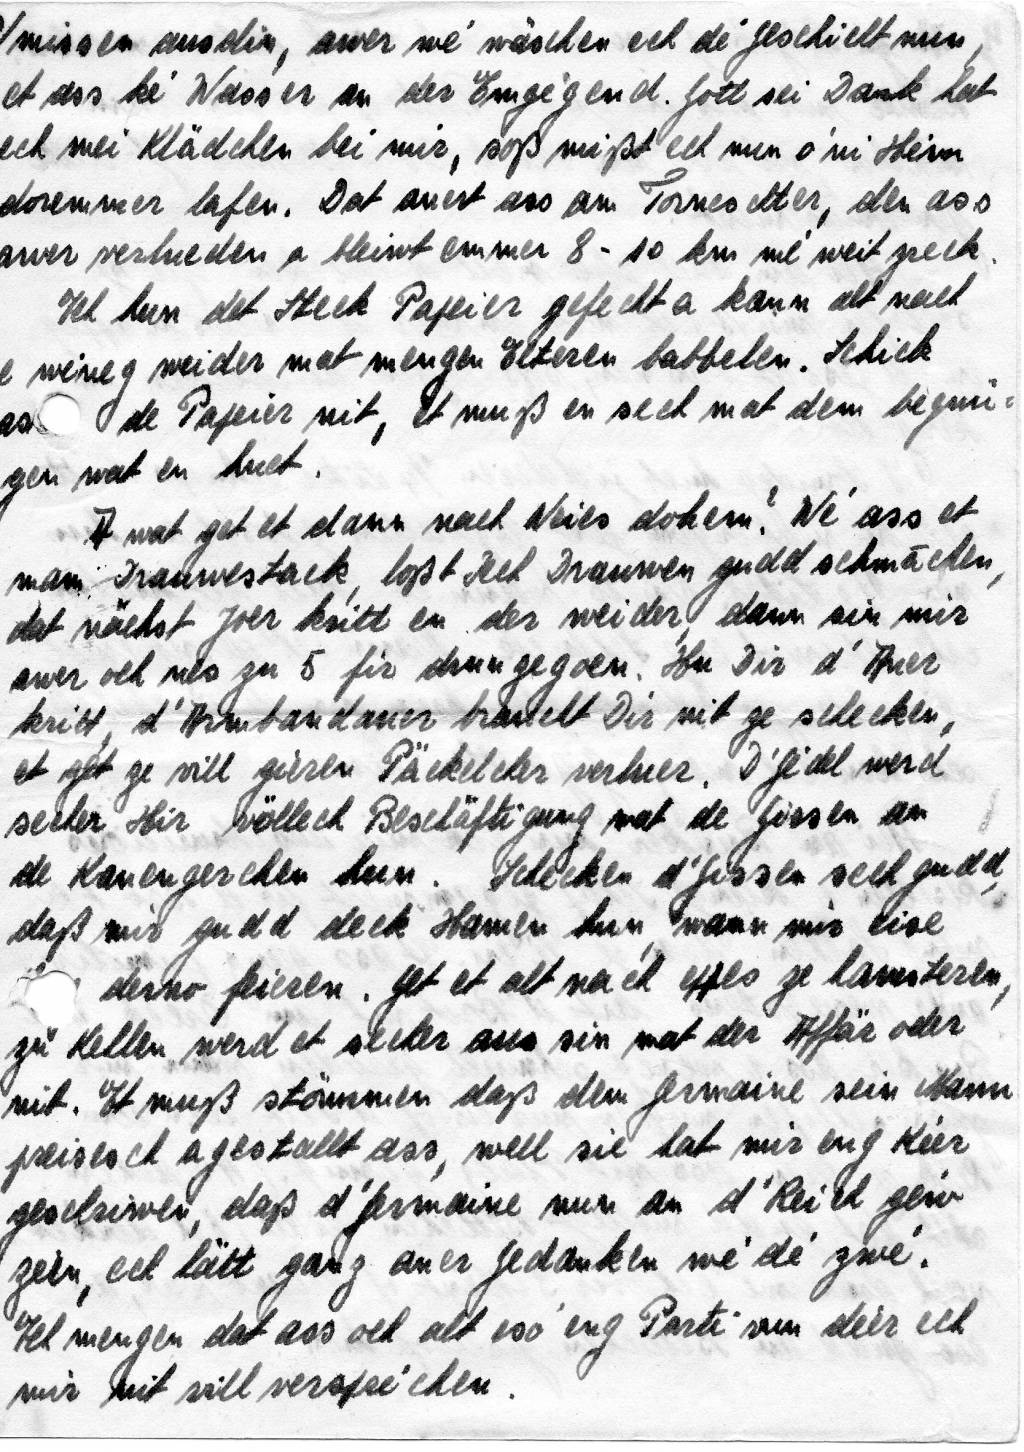 missen ausdin, awer wé wäschen ech dé Geschicht nun,
et ass ké Wasser an der Emgégend. Gott sei Dank hat
ech mei Klädchen bei mir, soß mißt ech nun o'ni Hiem
doremmer lafen. Dat anert ass am Tornester, den ass
awer verlueden a bleiwt emmer 8-10 km mé weit zreck.
Ech hun det Steck Papeier gefecht a kann alt nach
e wéneg weider mat mengen Elteren babbelen. Schick
as de Papeier nit, et muß en sech mat dem begnü-
gen wat en huet.
A wat get et dann nach Neies dohem? Wé ass et
mam Drauwestack, loßt Iech Drauwen gudd schmāchen,
dat nächst Joer kritt en der weider, dann sin mir
awer och nes zu 5 fir drun ze goen. Hu Dir d'Auer
kritt, d'Armbandauer braucht Dir nit ze schecken,
et get ze vill gieren Päckelcher verluer. D'Gidd werd
secher Hir völlech Beschäftigung mat de Gissen an
de Kanengercher hun. Schecken d'Gissen sech gudd,
daß mir gudd deck Hamen hun, wann mir eise
derno feieren. Get et alt nach eppes ze hamsteren,
zu Kellen werd et secher aus sin mat der Affär oder
nit. Et muß stömmen daß dem Germaine sein Mann
preisesch agestallt ass, well sie hat mir eng Kéer
geschriwen, daß d'Germaine nun an d'Reich géiw
zéen, ech hätt ganz aner Gedanken wé dé zwé.
Ech mengen dat ass och alt esó eng Parti vun déer ech
mir nit vill verspréchen.